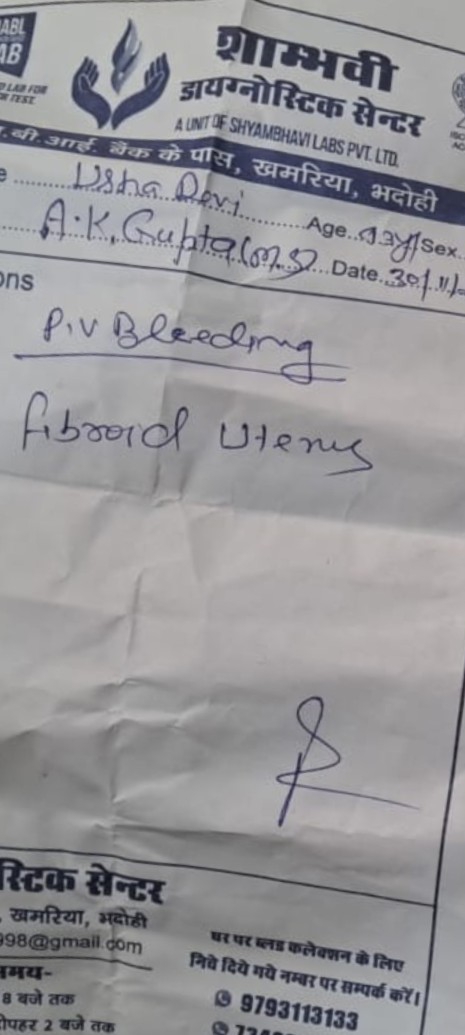 ABL
AB
D LAB FOR
R TEST.
शाम्भवी
डायग्नोस्टिक सेन्टर
A UNIT OF SHYAMBHAVI LABS PVT. LTD.
.बी.आई. बैंक के पास, खमरिया, भदोही
e Usha Devi Age Sex
A.K. Gupta (M.S) Date 30/11/
ons
P.V Bleeding
fibroid Uterus
स्टिक सेन्टर
, खमरिया, भदोही
998@gmail.com
समय-
8 बजे तक
ोपहर 2 बजे तक
घर पर ब्लड कलेक्शन के लिए
निचे दिये गये नम्बर पर सम्पर्क करें।
9793113133